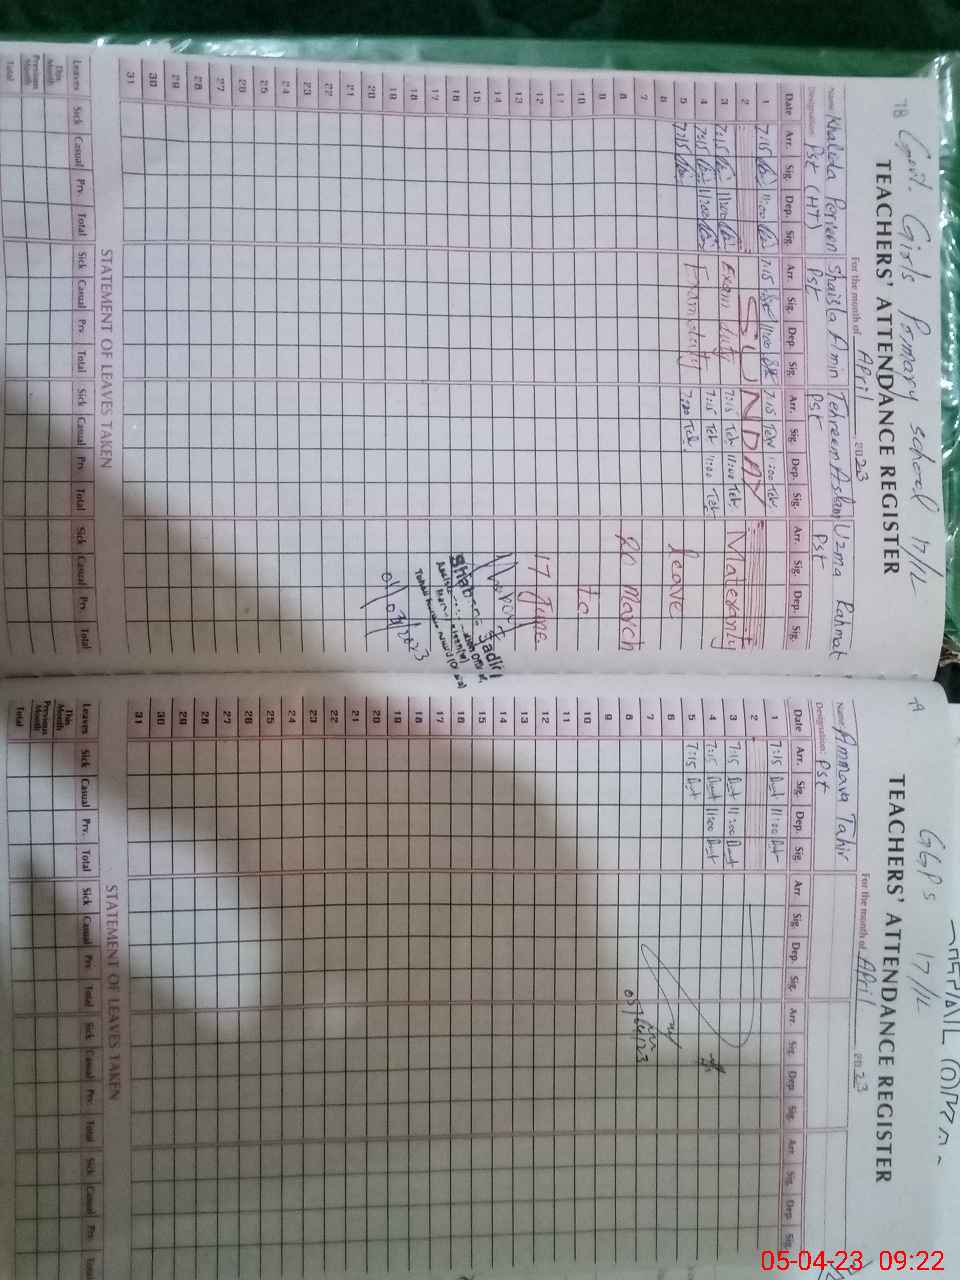 78 Govt. Girls Primary School 17/1L
TEACHERS' ATTENDANCE REGISTER
For the month of April 2023
Name Khaleda Parveen Shaista Amin Tehreem Aslam Uzma Rahmat
Designation Pst (HT) Pst Pst Pst
Date Arr. Sig. Dep. Sig. Arr. Sig. Dep. Sig. Arr. Sig. Dep. Sig. Arr. Sig. Dep. Sig.
1 7:15 11:00 7:15 11:00 7:15 Teh 11:00 Teh
2 SUNDAY
3 7:15 11:00 Exam duty 7:15 Teh 11:00 Teh Maternity
4 7:15 11:00 7:15 Teh 11:00 Teh
5 7:15 Exam duty 7:20 Teh. leave
6
7
8 20 March
9
10 to
11
12 17 June
13
14
15
16
17
18
19
20
21
22
23
24
25
26
27
28
29
30
31
STATEMENT OF LEAVES TAKEN
Leaves Sick Casual Prv. Total Sick Casual Prv. Total Sick Casual Prv. Total Sick Casual Prv. Total
This Month
Previous Month
Total
GGPS 17/1L
TEACHERS' ATTENDANCE REGISTER
For the month of April 2023
Name Ammara Tahir
Designation Pst
Date Arr. Sig. Dep. Sig. Arr. Sig. Dep. Sig. Arr. Sig. Dep. Sig. Arr. Sig. Dep. Sig.
1 7:15 11:00
2
3 7:15 11:00
4 7:15 11:00
5 7:15
6
7
8
9
10
11
12
13
14
15
16
17
18
19
20
21
22
23
24
25
26
27
28
29
30
31
STATEMENT OF LEAVES TAKEN
Leaves Sick Casual Prv. Total Sick Casual Prv. Total Sick Casual Prv. Total Sick Casual Prv. Total
This Month
Previous Month
Total
05-04-23 09:22